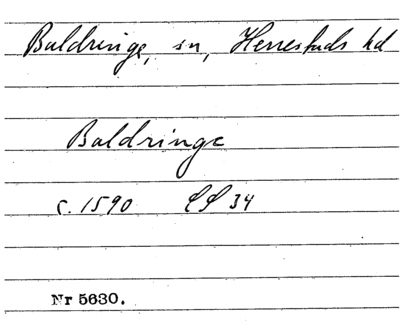 Baldringe, sn, Herrestads hd
Baldringe
c. 1590 LL 34
Nr 5630.